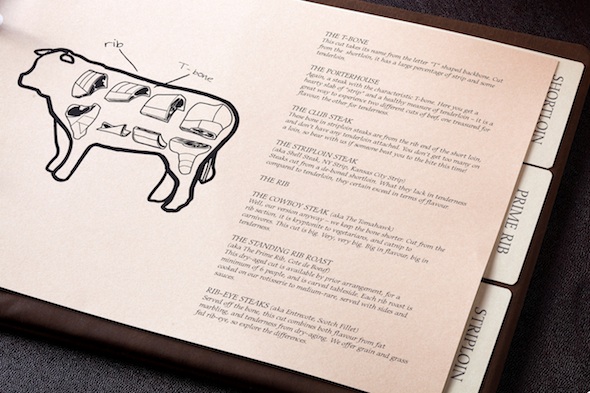 rib
T-bone
THE T-BONE
This cut takes its name from the letter "T" shaped backbone. Cut
from the shortloin, it has a large percentage of strip and some
tenderloin.
THE PORTERHOUSE
Again, a steak with the characteristic T-bone. Here you get a
hearty slab of "strip" and a healthy measure of tenderloin - it is a
great way to experience two different cuts of beef, one treasured for
flavour, the other for tenderness.
THE CLUB STEAK
These bone in striploin steaks are from the rib end of the short loin,
and don't have any tenderloin attached. You don't get too many on
a loin, so bear with us if someone beat you to the bite this time!
THE STRIPLOIN STEAK
(aka Shell Steak, NY Strip, Kansas City Strip)
Steaks cut from a de-boned shortloin. What they lack in tenderness
compared to tenderloin, they certain exceed in terms of flavour.
THE RIB
THE COWBOY STEAK (aka The Tomahawk)
Well, our version anyway – we keep the bone shorter. Cut from the
rib section, it is kryptonite to vegetarians, and catnip to
carnivores. This cut is big. Very, very big. Big in flavour, big in
tenderness.
THE STANDING RIB ROAST
(aka The Prime Rib, Cote de Boeuf)
This dry-aged cut is available by prior arrangement, for a
minimum of 6 people, and is carved tableside. Each rib roast is
cooked on our rotisserie to medium-rare, served with sides and
sauces.
RIB-EYE STEAKS (aka Entrecote, Scotch Fillet)
Served off the bone, this cut combines both flavour from fat
marbling, and tenderness from dry-aging. We offer grain and grass
fed rib-eye, so explore the differences.
SHORTLOIN
PRIME RIB
STRIPLOIN